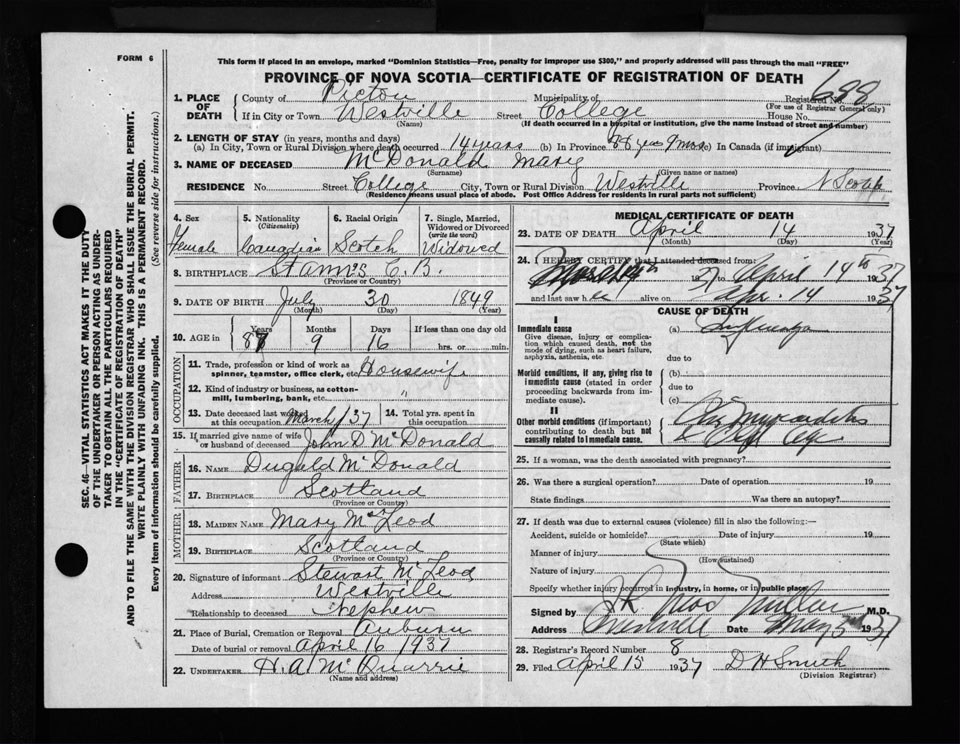 FORM 6
This form if placed in an envelope, marked "Dominion Statistics—Free, penalty for improper use $300," and properly addressed will pass through the mail "FREE"
PROVINCE OF NOVA SCOTIA—CERTIFICATE OF REGISTRATION OF DEATH
1. PLACE OF DEATH County of Pictou Municipality of Registered No. 688
(For use of Registrar General only)
If in City or Town Westville Street College House No.
(Name) (If death occurred in a hospital or institution, give the name instead of street and number)
2. LENGTH OF STAY (in years, months and days)
(a) In City, Town or Rural Division where death occurred 14 years (b) In Province 9 mos (c) In Canada (if immigrant)
3. NAME OF DECEASED McDonald Mary
(Surname) (Given name or names)
RESIDENCE No. Street College City, Town or Rural Division Westville Province N Scotia
(Residence means usual place of abode. Post Office Address for residents in rural parts not sufficient)
4. Sex 5. Nationality (Citizenship) 6. Racial Origin 7. Single, Married, Widowed or Divorced (write the word)
Female Canadian Scotch Widowed
8. BIRTHPLACE St Anns C. B.
(Province or Country)
9. DATE OF BIRTH July 30 1849
(Month) (Day) (Year)
10. AGE in Years Months Days If less than one day old
87 9 16 hrs. or min.
OCCUPATION
11. Trade, profession or kind of work as spinner, teamster, office clerk, etc. Housewife
12. Kind of industry or business, as cotton-mill, lumbering, bank, etc. "
13. Date deceased last worked at this occupation March/37 14. Total yrs. spent in this occupation
15. If married give name of wife or husband of deceased John D McDonald
FATHER
16. NAME Duguld McDonald
17. BIRTHPLACE Scotland
(Province or Country)
MOTHER
18. MAIDEN NAME Mary McLeod
19. BIRTHPLACE Scotland
(Province or Country)
20. Signature of informant Stewart McLeod
Address Westville
Relationship to deceased Nephew
21. Place of Burial, Cremation or Removal Auburn
Date of burial or removal April 16 1937
22. UNDERTAKER H. A McQuarrie
(Name and address)
MEDICAL CERTIFICATE OF DEATH
23. DATE OF DEATH April 14 1937
(Month) (Day) (Year)
24. I HEREBY CERTIFY that I attended deceased from:
37 to April 14th 1937
and last saw h er alive on Apr. 14 1937
CAUSE OF DEATH
I
Immediate cause (a) Influenza
Give disease, injury or complication which caused death, not the mode of dying, such as heart failure, asphyxia, asthenia, etc.
due to
Morbid conditions, if any, giving rise to immediate cause (stated in order proceeding backwards from immediate cause). (b)
due to
(c)
II
Other morbid conditions (if important) contributing to death but not causally related to immediate cause. Chr Myocarditis
Age
25. If a woman, was the death associated with pregnancy?
26. Was there a surgical operation? Date of operation 19
State findings Was there an autopsy?
27. If death was due to external causes (violence) fill in also the following:—
Accident, suicide or homicide? Date of injury 19
(State which)
Manner of injury
(How sustained)
Nature of injury
Specify whether injury occurred in industry, in home, or in public place
Signed by Miller M.D.
Address Westville Date May 3rd 1937
28. Registrar's Record Number 8
29. Filed April 15 1937 D H Smith
(Division Registrar)
SEC. 46—VITAL STATISTICS ACT MAKES IT THE DUTY
OF THE UNDERTAKER OR PERSON ACTING AS UNDER-
TAKER TO OBTAIN ALL THE PARTICULARS REQUIRED
IN THE "CERTIFICATE OF REGISTRATION OF DEATH"
AND TO FILE THE SAME WITH THE DIVISION REGISTRAR WHO SHALL ISSUE THE BURIAL PERMIT.
WRITE PLAINLY WITH UNFADING INK. THIS IS A PERMANENT RECORD.
Every item of information should be carefully supplied. (See reverse side for instructions.)